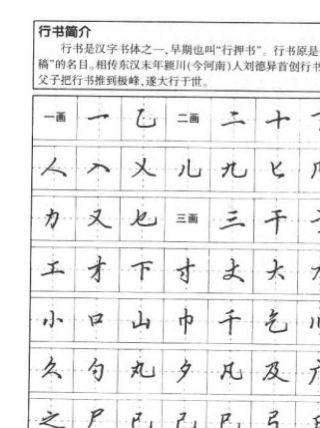 行书简介
行书是汉字书体之一,早期也叫“行押书”。行书原是
稿”的名目。相传东汉末年颍川(今河南)人刘德昇首创行书
父子把行书推到极峰,遂大行于世。
一画 一 乙 二画 二 十
人 入 乂 儿 九 匕
力 又 乜 三画 三 干
工 才 下 寸 丈 大
小 口 山 巾 千 乞
久 勺 丸 夕 凡 及
之 尸 已 己 巳 弓